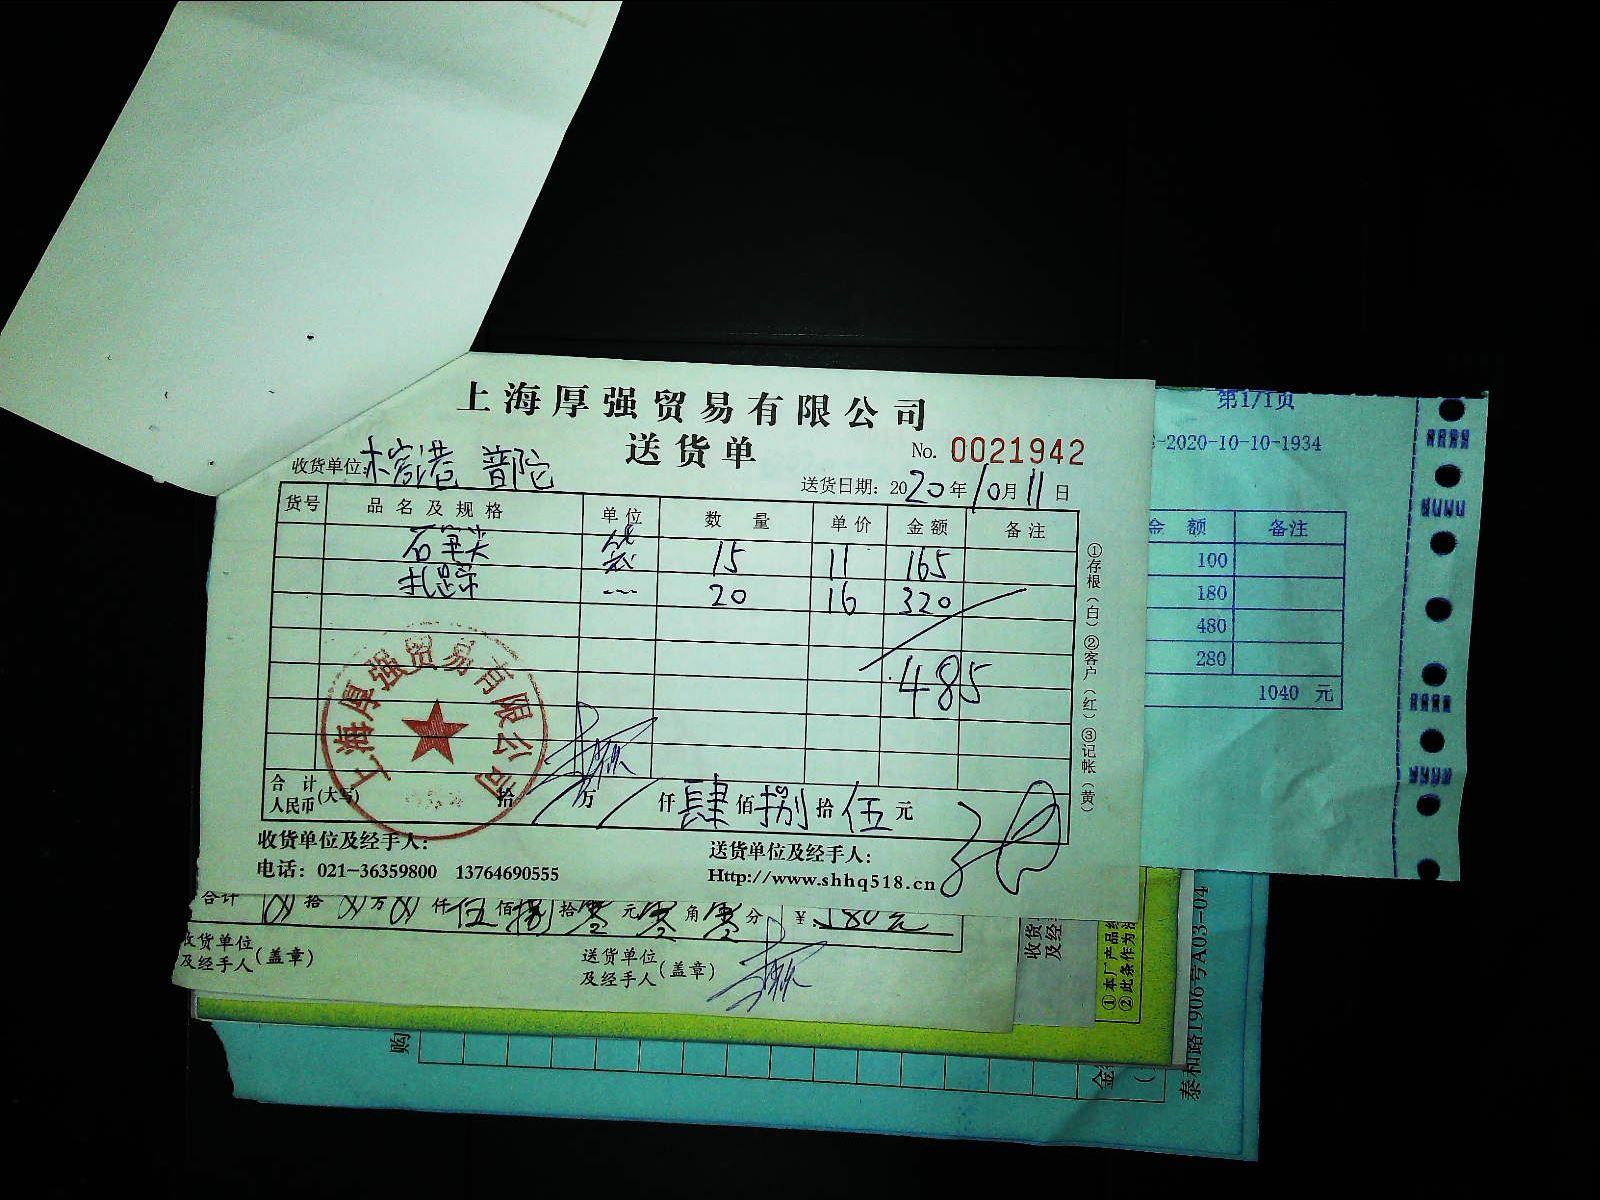 上海厚强贸易有限公司
送货单
No. 0021942
收货单位: 普陀
送货日期: 2020年10月11日
货号 品名及规格 单位 数量 单价 金额 备注
袋 15 11 165
20 16 320
485
合计人民币(大写) 拾 万 仟 肆 佰 捌 拾 伍 元
收货单位及经手人:
送货单位及经手人:
电话: 021-36359800 13764690555
Http://www.shhq518.cn
①存根(白)②客户(红)③记帐(黄)
上海厚强贸易有限公司
第1/1页
-2020-10-10-1934
金额 备注
100
180
480
280
1040 元
合计 拾 万 仟 伍 佰 捌 拾 零 元 零 角 零 分 ¥: 580元
收货单位及经手人(盖章)
送货单位及经手人(盖章)
收货
及经
①本厂产品
②此条作为
购
泰和路1906号A03-04